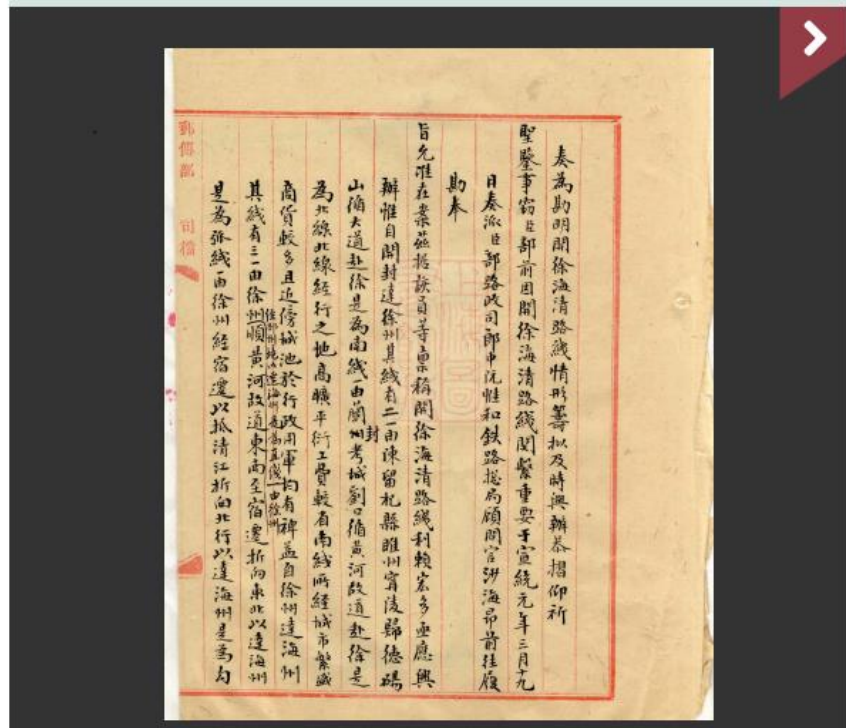 奏為勘明開徐海清路綫情形籌拟及時興辦恭摺仰祈
聖鑒事竊臣部前因開徐海清路綫関繫重要于宣統元年三月十九
日奏派臣部路政司郎中阮惟和鉄路総局顧問官沙海昂前往履
勘奉
旨允准在案茲据該員等禀稱開徐海清路綫利賴宏多亟應興
辦惟自開封達徐州其綫有二一由陳留杞縣睢州甯陵歸德碭
山循大道赴徐是為南綫一由蘭州考城劉口循黃河故道赴徐是
封
為北線北線経行之地高曠平衍工費較省南綫所経城市繁盛
商貨較多且近傍城池於行政用軍均有裨益自徐州達海州
経邳州境以達海州是為直綫一由徐州
其綫有三一由徐州順黃河故道東南至宿遷折向東北以達海州
是為弧綫一由徐州経宿遷以抵清江折向北行以達海州是為勾
郵傳部 司稿